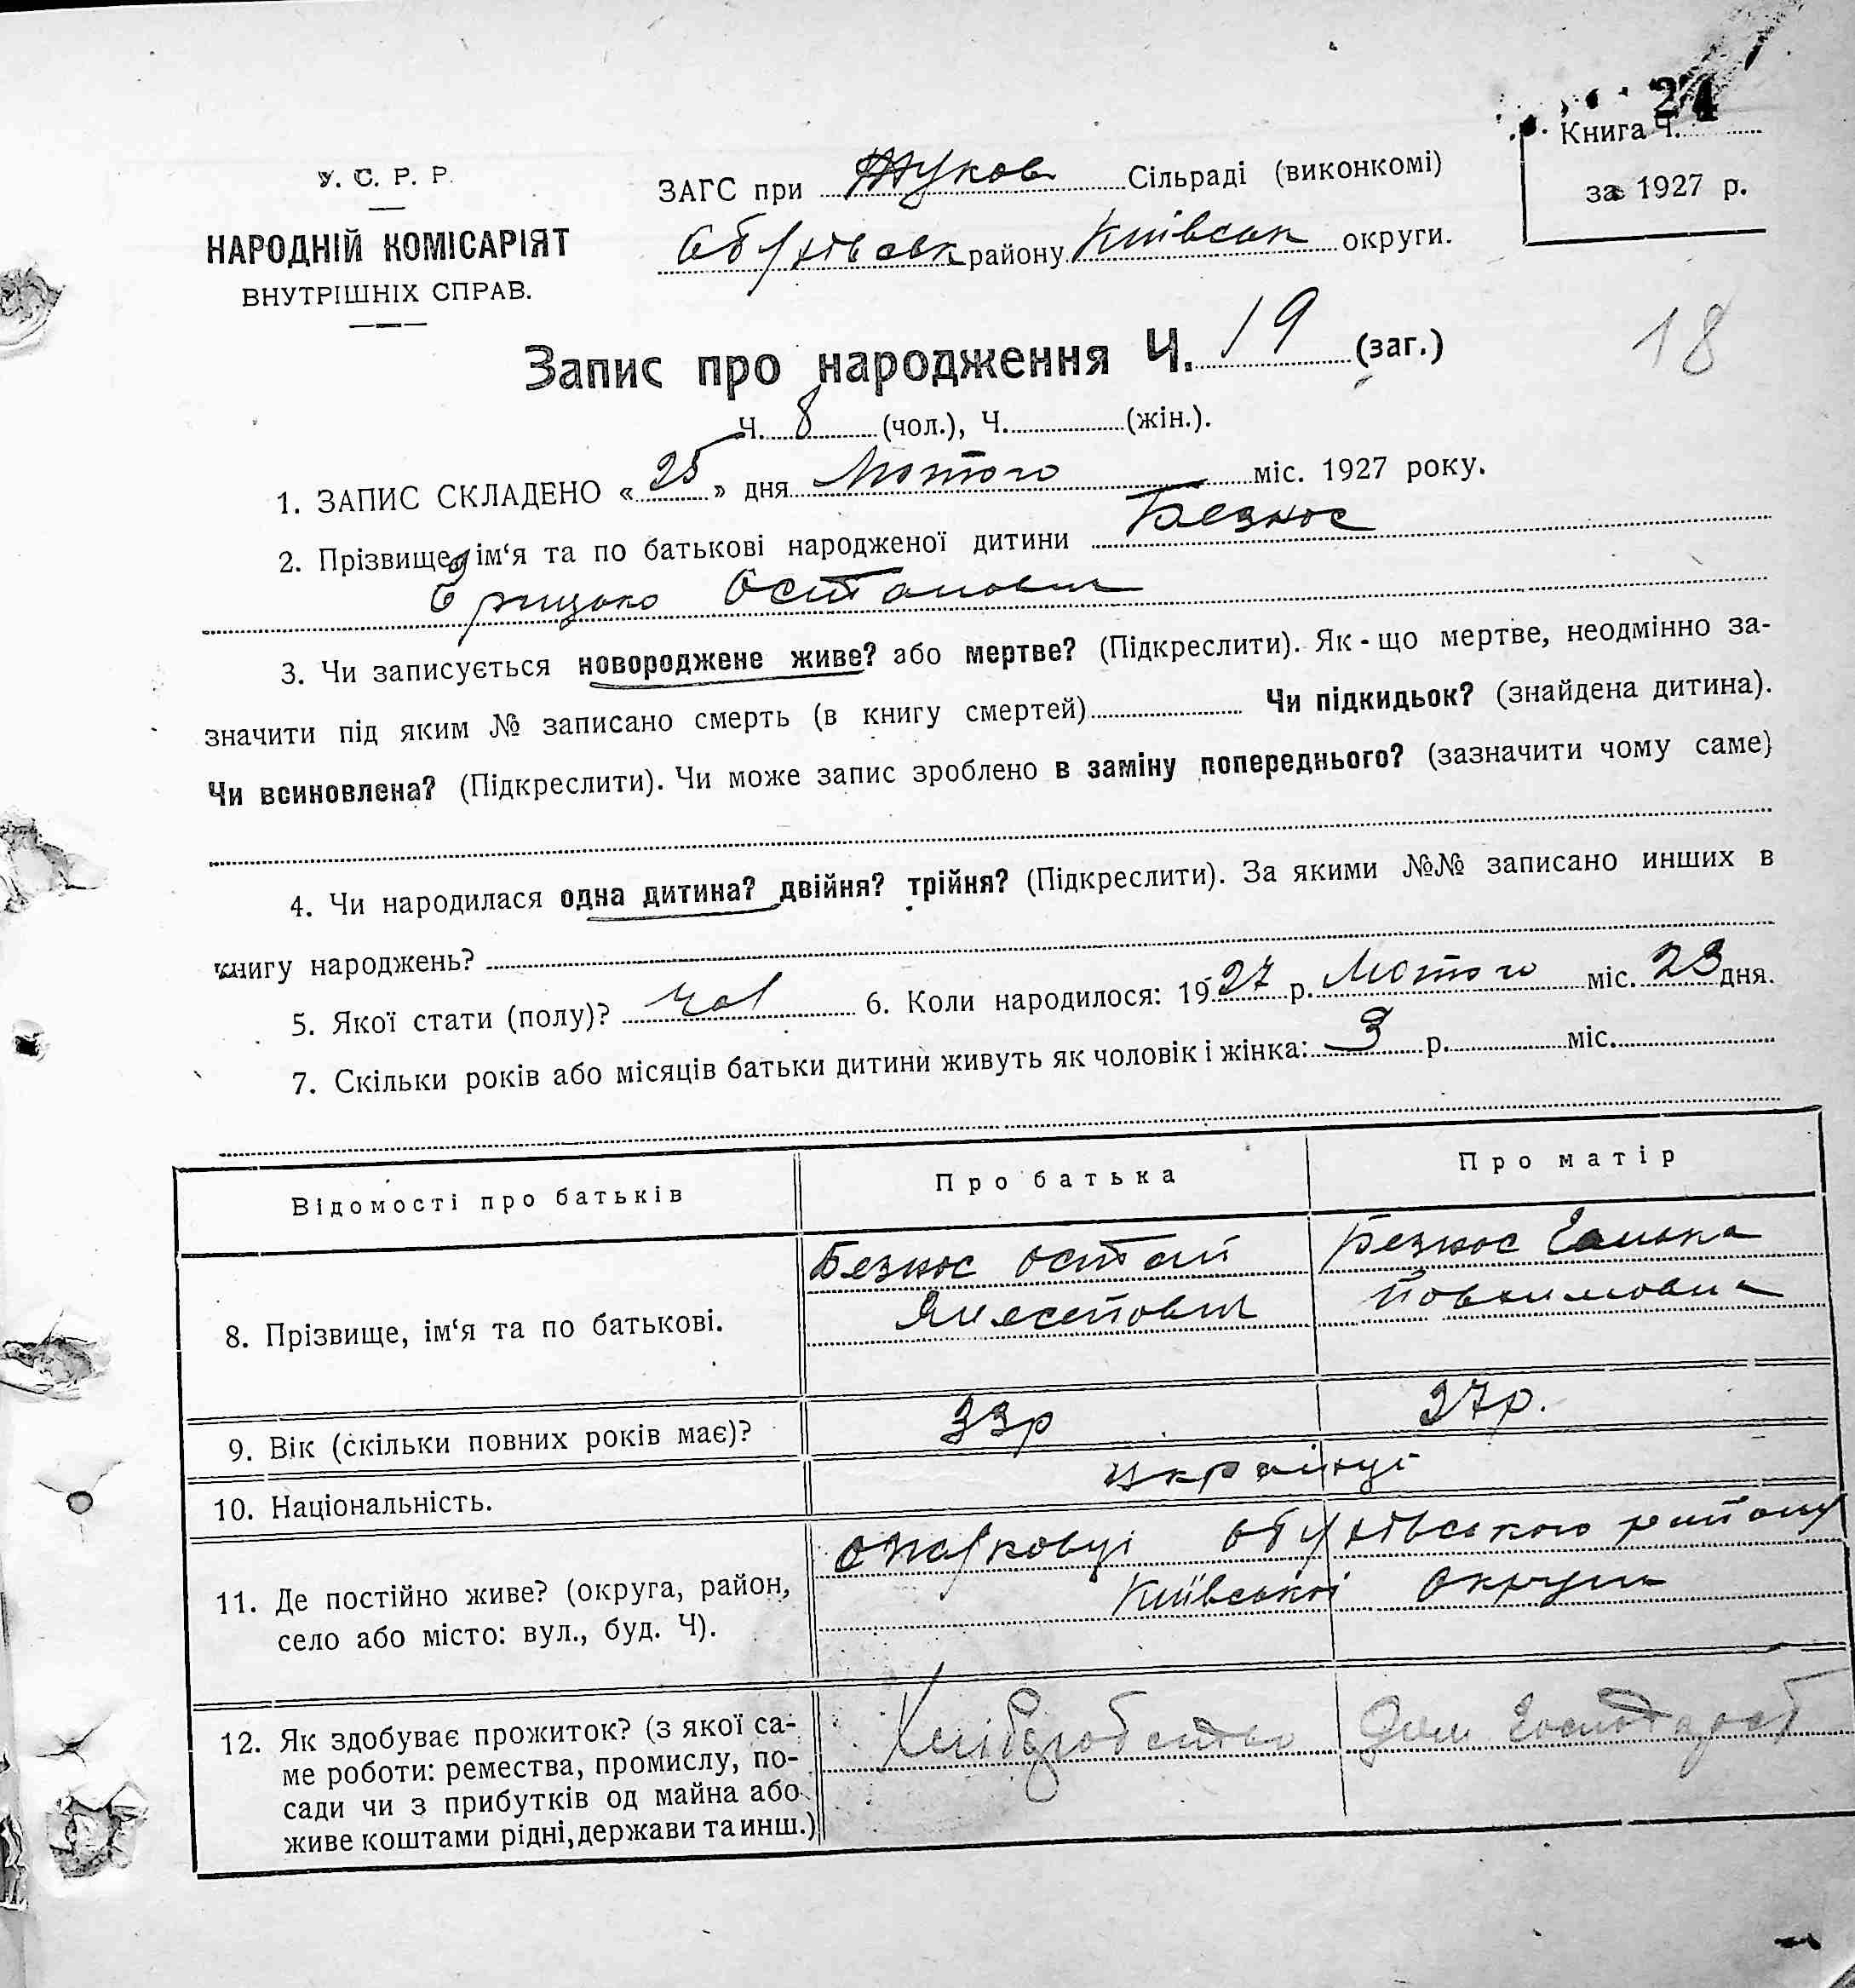 24
Книга Ч.
за 1927 р.
У. С. Р. Р.
НАРОДНІЙ КОМІСАРІЯТ
ВНУТРІШНІХ СПРАВ.
ЗАГС при Жуков Сільраді (виконкомі)
Обухівськ району Київськ округи.
18
Запис про народження Ч. 19 (заг.)
Ч. 8 (чол.), Ч. (жін.).
1. ЗАПИС СКЛАДЕНО « 25 » дня Лютого міс. 1927 року.
2. Прізвище, ім‘я та по батькові народженої дитини Безнос
Грицько Остапович
3. Чи записується новороджене живе? або мертве? (Підкреслити). Як-що мертве, неодмінно за-
значити під яким № записано смерть (в книгу смертей) Чи підкидьок? (знайдена дитина).
Чи всиновлена? (Підкреслити). Чи може запис зроблено в заміну попереднього? (зазначити чому саме)
4. Чи народилася одна дитина? двійня? трійня? (Підкреслити). За якими №№ записано инших в
книгу народжень?
5. Якої стати (полу)? чол 6. Коли народилося: 1927 р. Лютого міс. 23 дня.
7. Скільки років або місяців батьки дитини живуть як чоловік і жінка: 3 р. міс.
Відомості про батьків Про батька Про матір
8. Прізвище, ім‘я та по батькові.
Безнос Остап Безнос Ганька
Йовхимовна
9. Вік (скільки повних років має)? 33р 27р.
10. Національність. українці
11. Де постійно живе? (округа, район,
село або місто: вул., буд. Ч).
Обухівського району
Київської округи
12. Як здобуває прожиток? (з якої са-
ме роботи: ремества, промислу, по-
сади чи з прибутків од майна або
живе коштами рідні, держави та инш.)
Хліборобство Дом Господарст